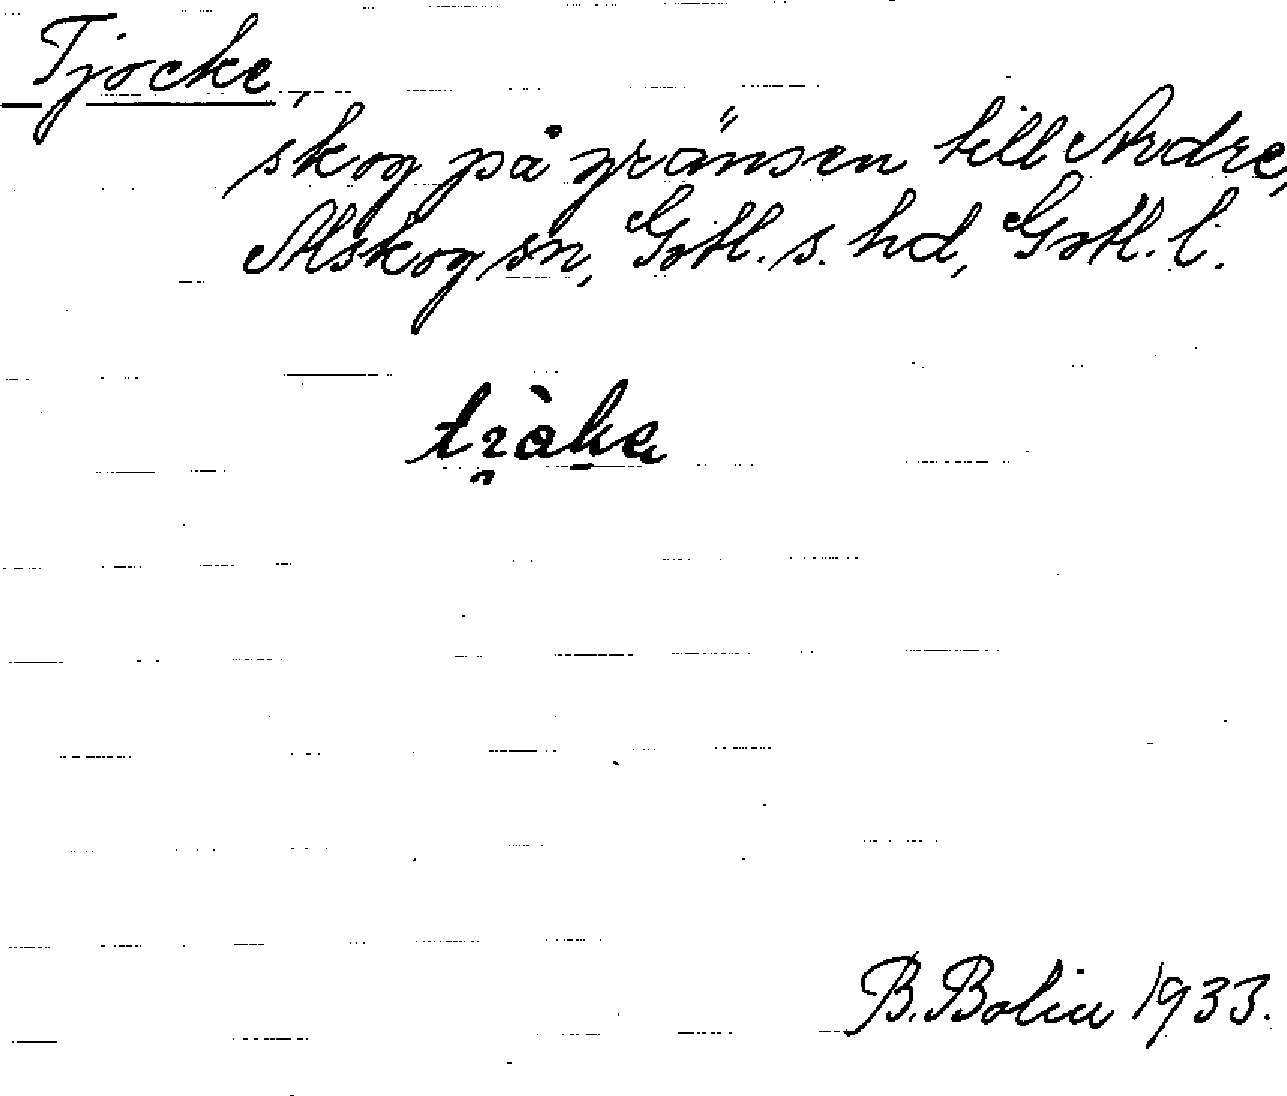 Tjocke,
skog på gränsen till Ardre,
Alskog sn, Gotl. s. hd, Gotl. l.
B. Bolin 1933.